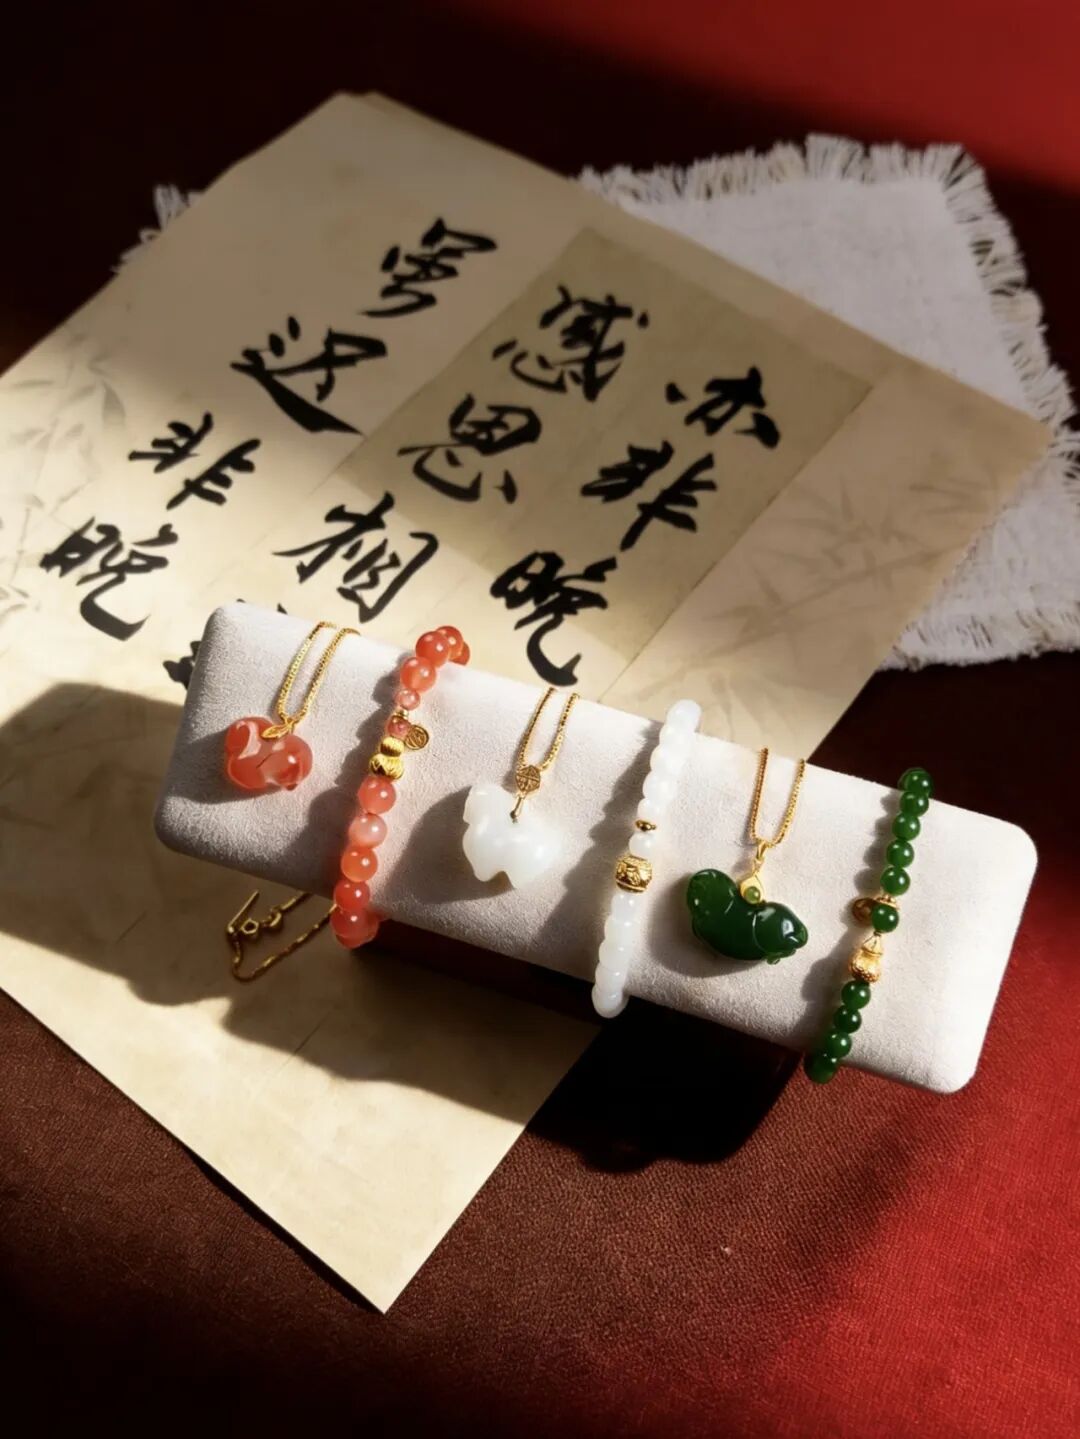 亦非晚
感恩相
迟非晚